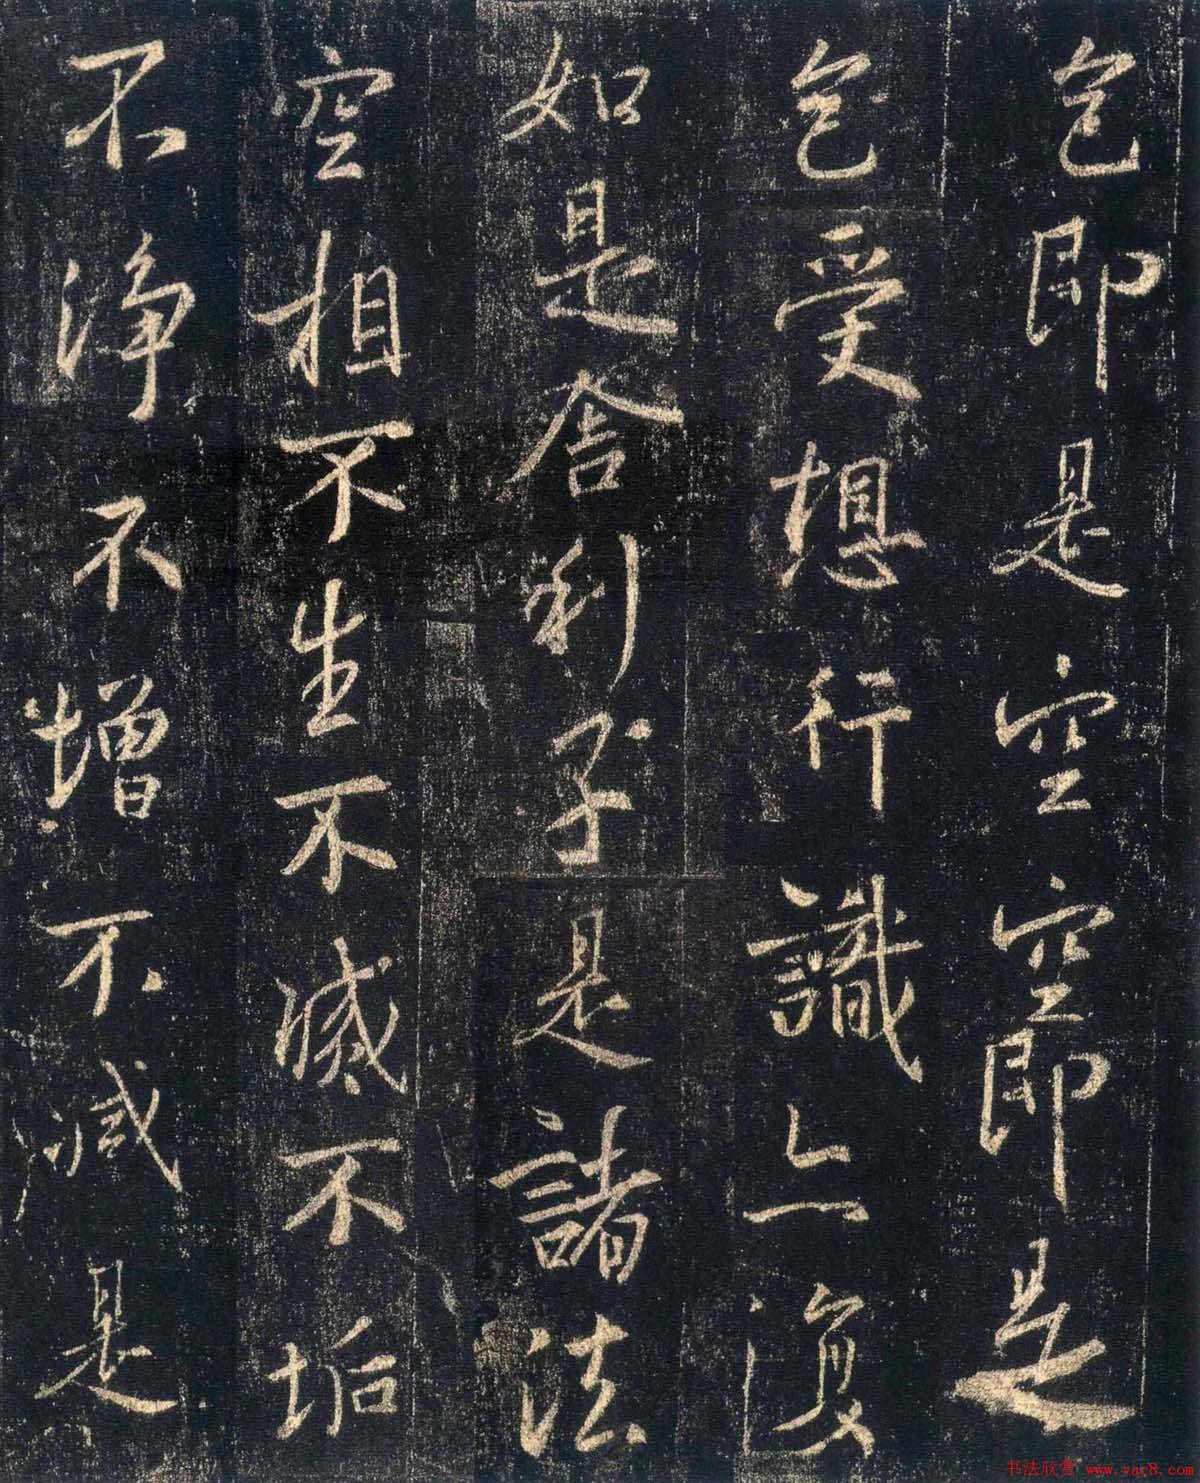 色即是空空即是
色受想行識亦復
如是舍利子是諸法
空相不生不滅不垢
不淨不增不減是
书法欣赏 www.yac8.com